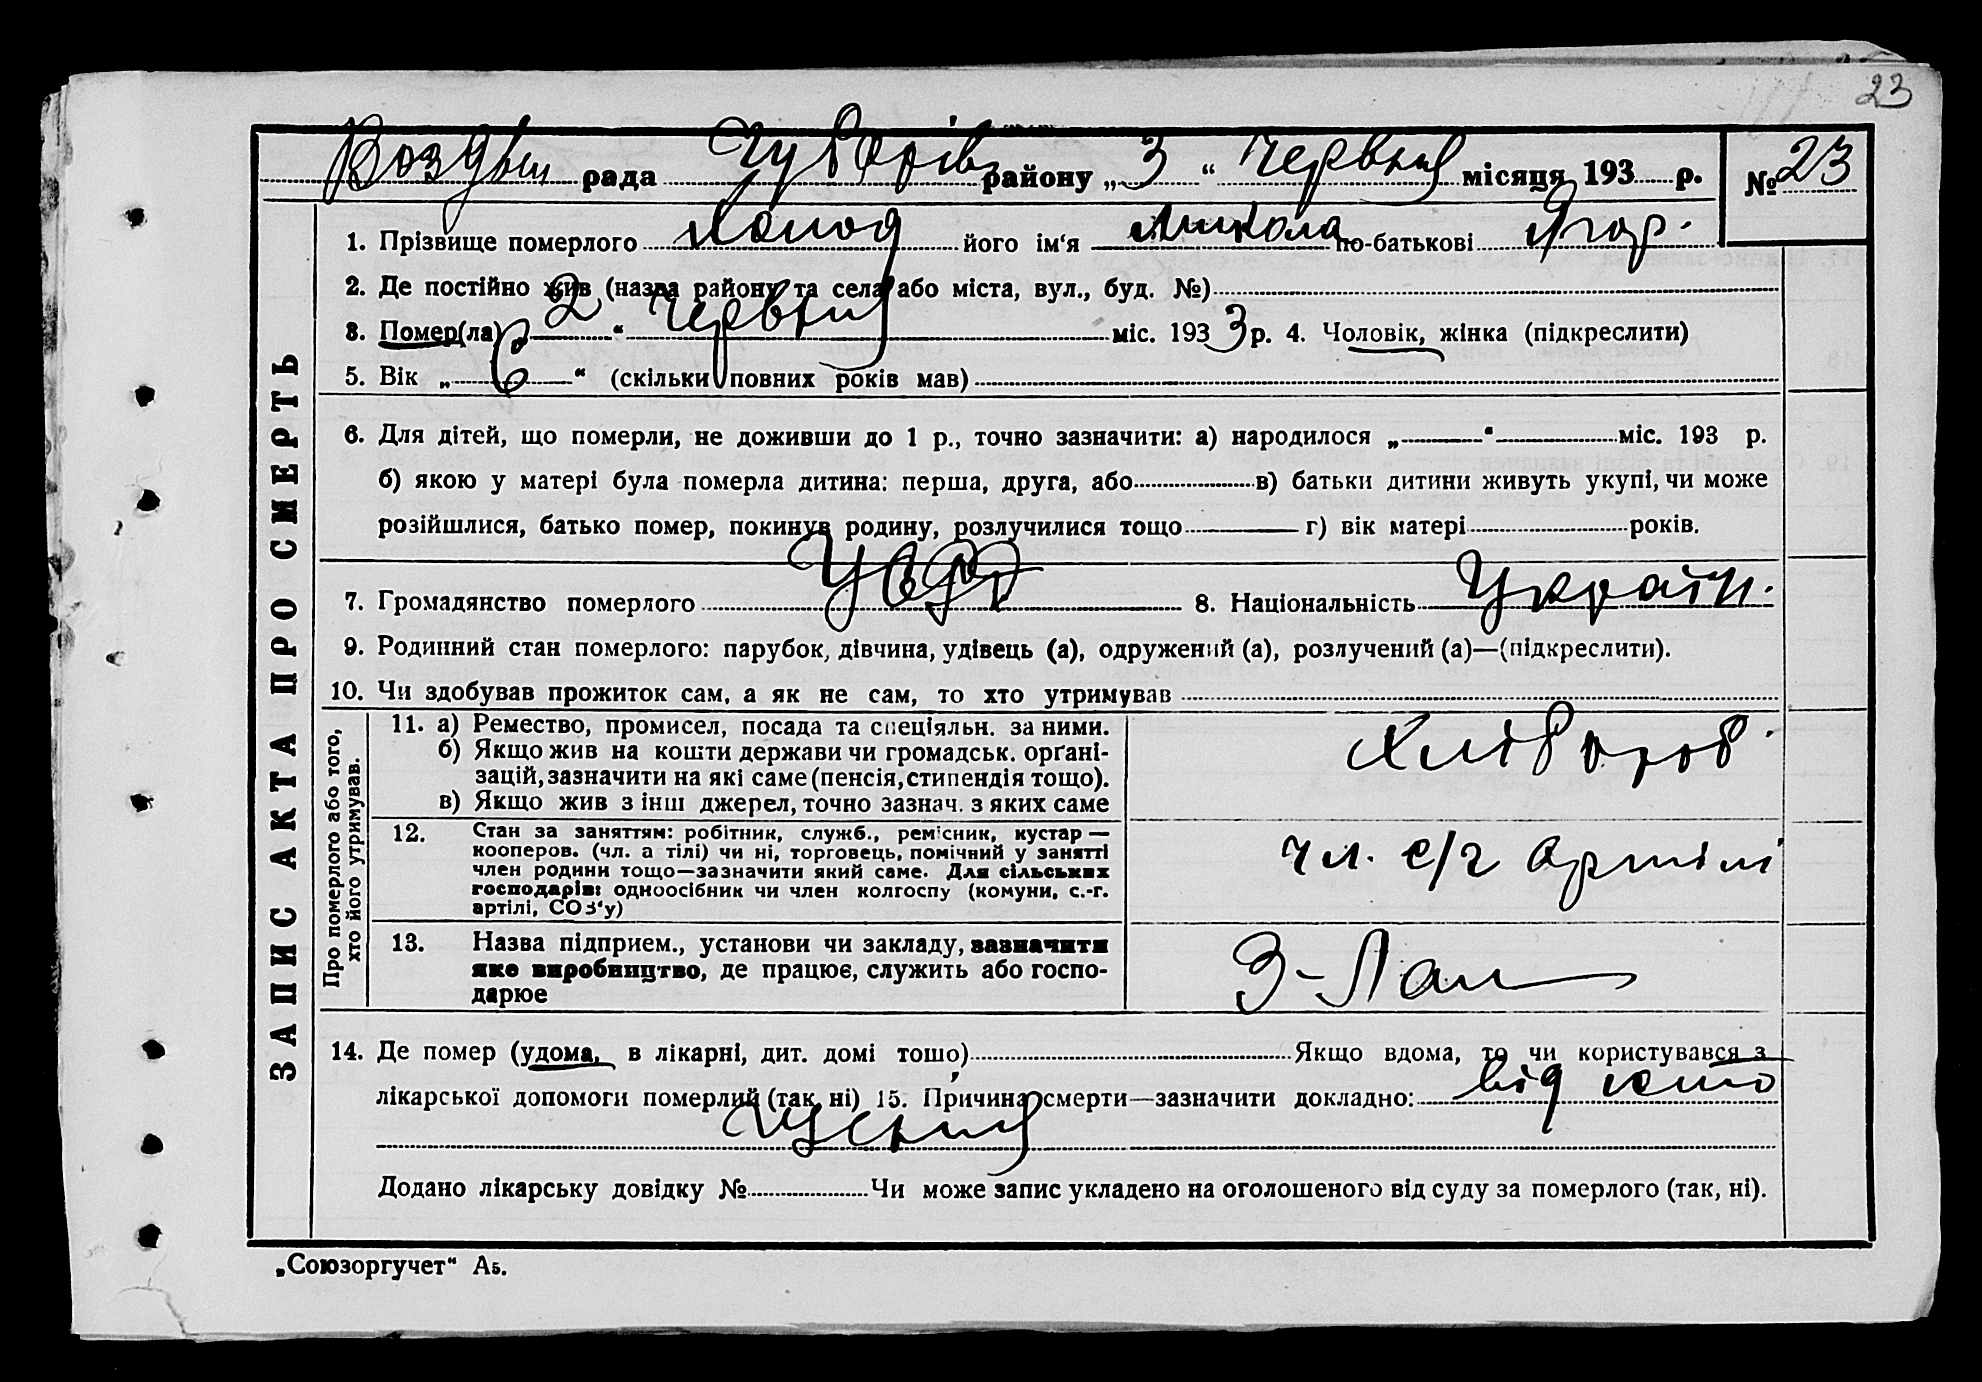 23
Воздвиж рада Чубарівс району „ 3 “ Червня місяця 193 р. № 23
1. Прізвище померлого Холод його ім‘я Микола по-батькові Ягор.
2. Де постійно жив (назва району та села або міста, вул., буд. №)
3. Помер(ла) „ 2 “ Червня міс. 193 3 р. 4. Чоловік, жінка (підкреслити)
5. Вік „ 6 “ (скільки повних років мав)
6. Для дітей, що померли, не доживши до 1 р., точно зазначити: а) народилося „ “ міс. 193 р.
б) якою у матері була померла дитина: перша, друга, або в) батьки дитини живуть укупі, чи може
розійшлися, батько помер, покинув родину, розлучилися тощо г) вік матері років.
7. Громадянство померлого УСРР 8. Національність Україн.
9. Родинний стан померлого: парубок, дівчина, удівець (а), одружений (а), розлучений (а)—(підкреслити).
10. Чи здобував прожиток сам, а як не сам, то хто утримував
11. а) Ремество, промисел, посада та спеціяльн. за ними.
б) Якщо жив на кошти держави чи громадськ. орґані-
зацій, зазначити на які саме (пенсія, стипендія тощо).
в) Якщо жив з інш джерел, точно зазнач. з яких саме
Хлібороб.
12. Стан за заняттям: робітник, служб., ремісник, кустар —
кооперов. (чл. а тілі) чи ні, торговець, помічний у занятті
член родини тощо—зазначити який саме. Для сільських
господарів: одноосібник чи член колгоспу (комуни, с.-г.
артілі, СОЗ‘у)
чл. с/г артілі
13. Назва підприєм., установи чи закладу, зазначити
яке виробництво, де працює, служить або госпо-
дарює
З-Лан
14. Де помер (удома, в лікарні, дит. домі тощо) Якщо вдома, то чи користувався з
лікарської допомоги померлий (так, ні) 15. Причина смерти—зазначити докладно: від
Додано лікарську довідку № Чи може запис укладено на оголошеного від суду за померлого (так, ні).
„Союзоргучет“ А5.
ЗАПИС АКТА ПРО СМЕРТЬ
Про померлого або того,
хто його утримував.